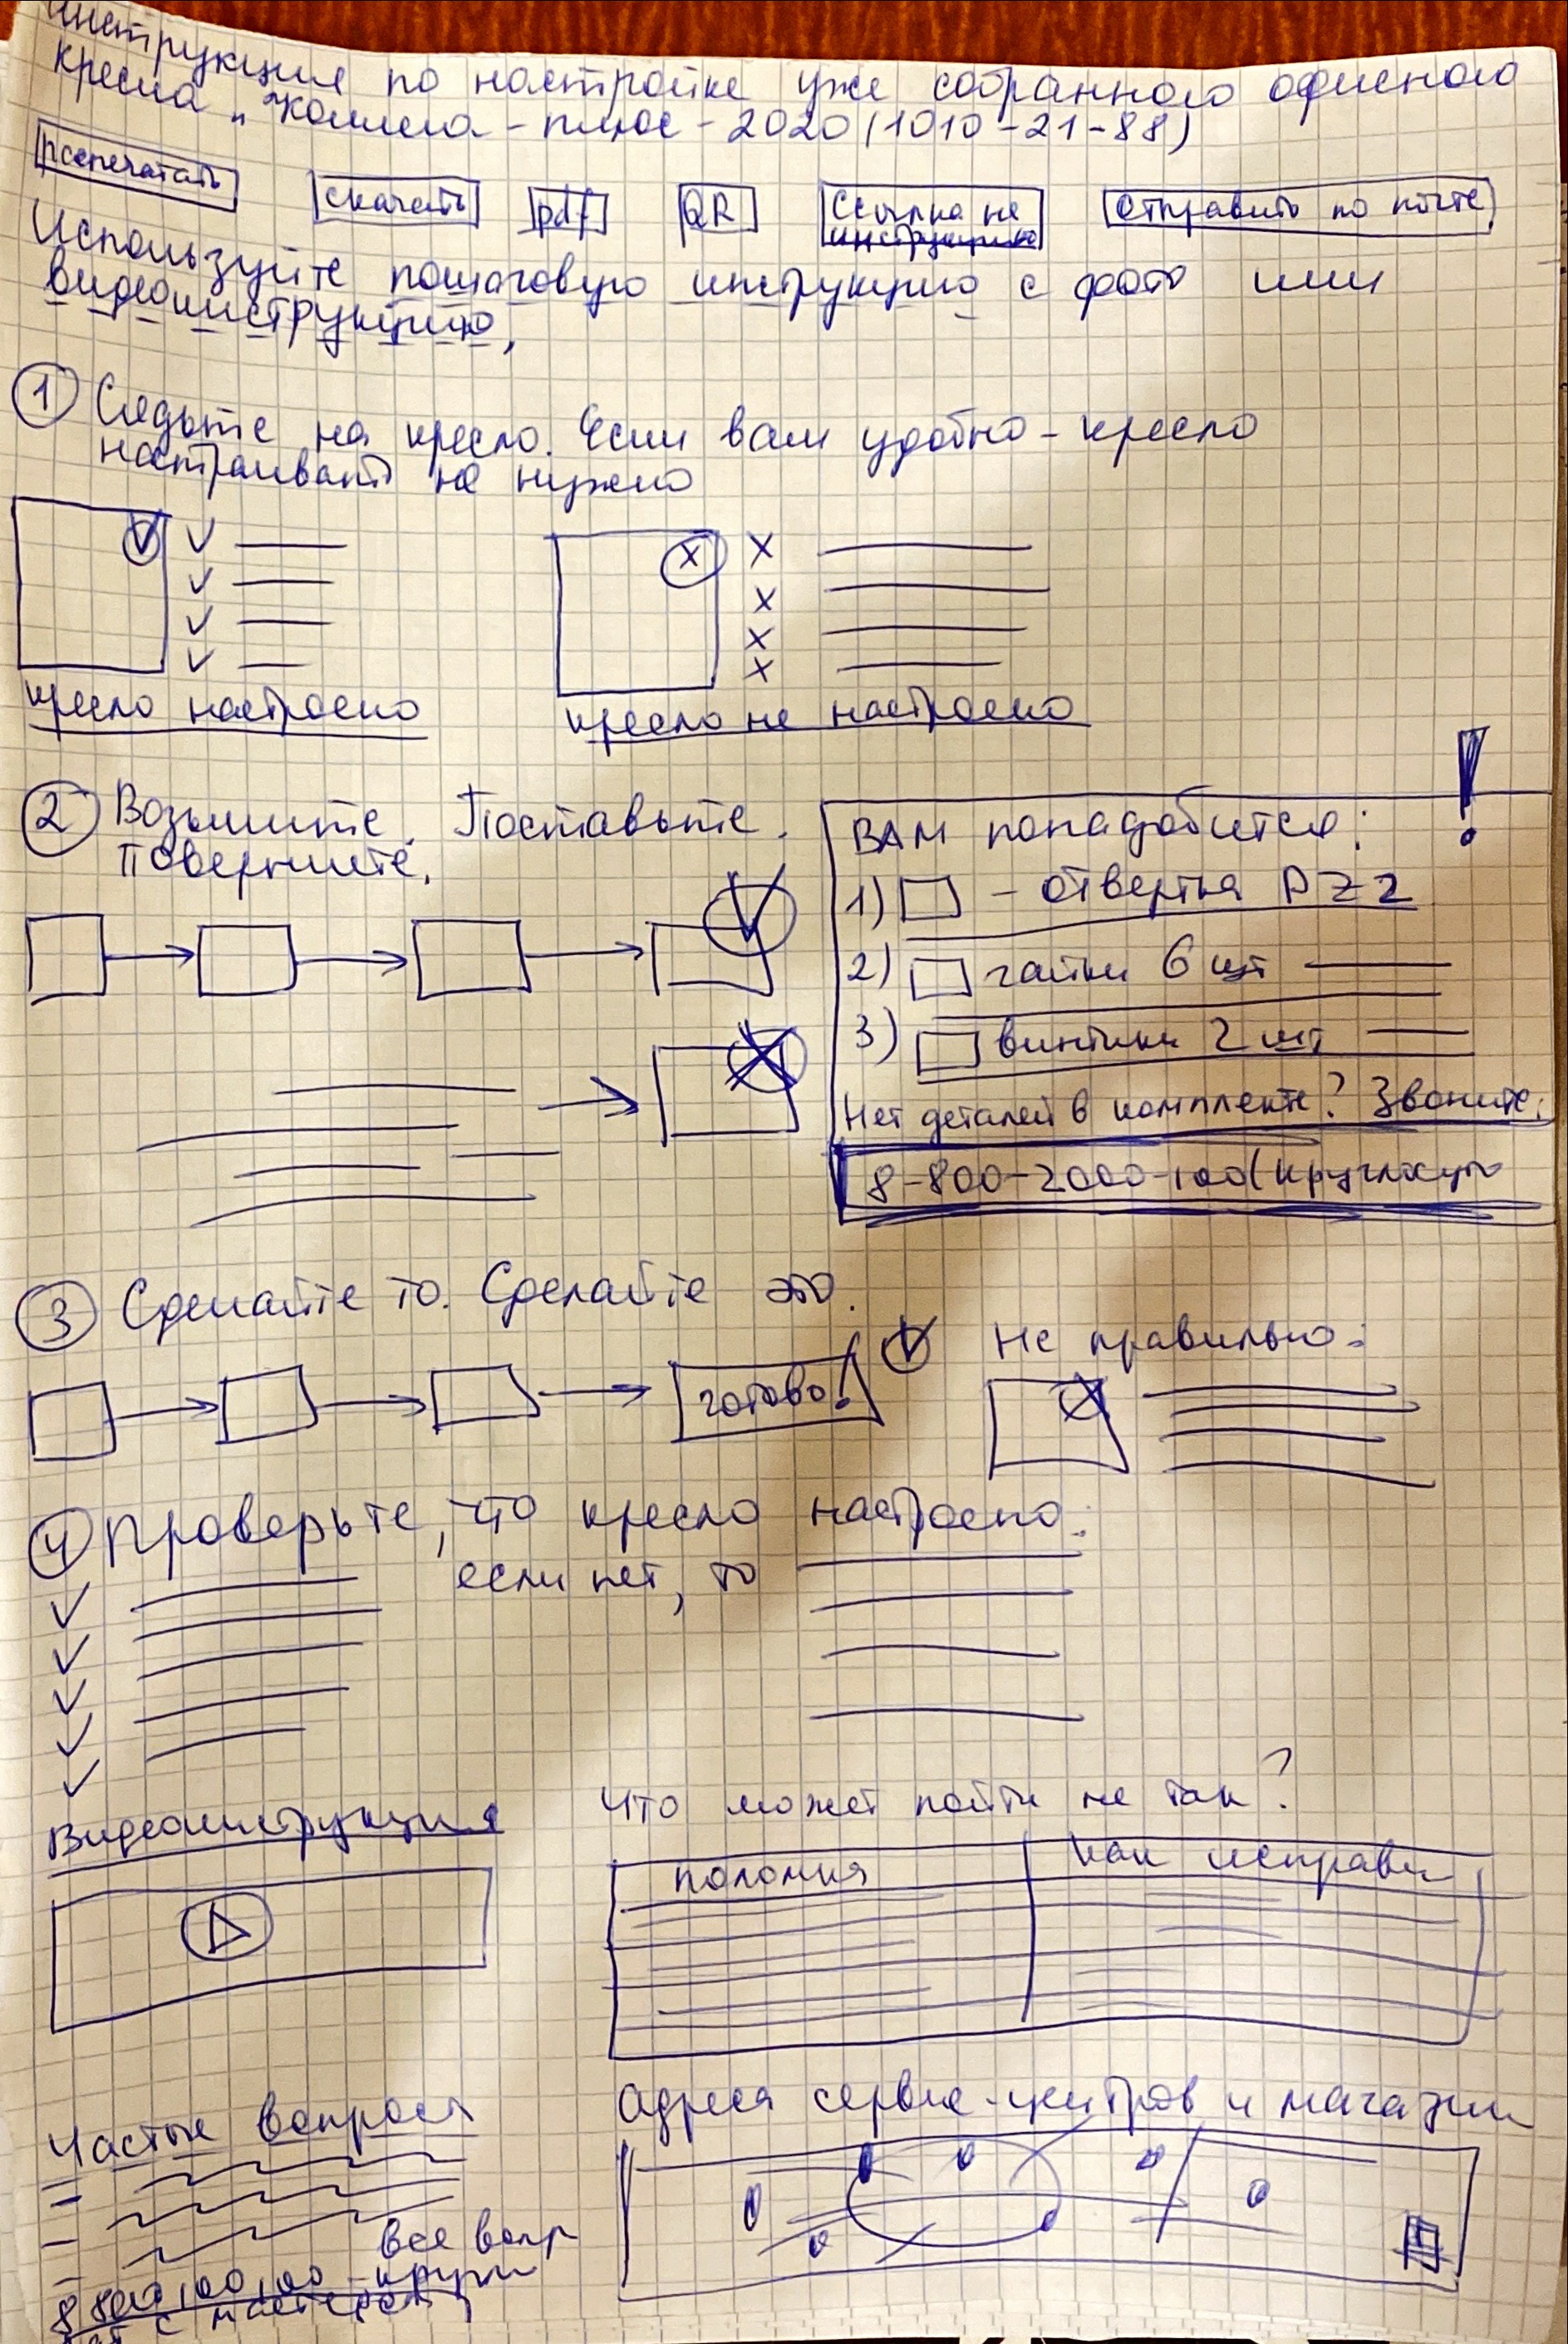 инструкция по настройке уже собранного офисного
кресла "Коллега-плюс-2020 (1010-21-88)
распечатать
скачать
pdf
QR
Ссылка на
инструкцию
отправить по почте
Используйте пошаговую инструкцию с фото или
видеоинструкцию,
1 Сядьте на кресло. Если вам удобно - кресло
настраивать не нужно
кресло настроено
кресло не настроено
2 Возьмите. Поставьте.
Поверните.
ВАМ понадобится:
!
1) - отвертка PZ2
2) гайки 6 шт
3) винтики 2 шт
Нет деталей в комплекте? Звоните:
8-800-2000-100 (круглосут
3 Сделайте то. Сделайте это.
готово!
Не правильно:
4 Проверьте, что кресло настроено:
если нет, то
Видеоинструкция
Что может пойти не так?
поломка
как исправи
Частые вопросы
все вопр
8 800 100 100 - кругл
с мастером
Адреса сервис-центров и магазин